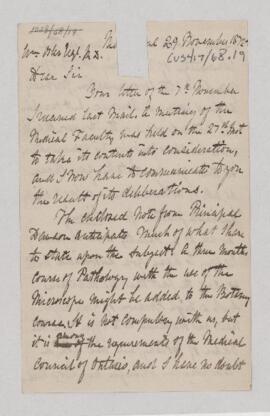 29 November 1872
CUS417/68.19
Wm Osler Esq. M.D.
Dear Sir
Your letter of the 7th November
I received last Mail. A meeting of the
Medical Faculty was held on the 27th Inst
to take its contents into consideration,
and I now have to communicate to you
the result of its deliberations.
The enclosed Note from Principal
Dawson anticipates much of what I have
to state upon the subject. A three months
Course of Pathology with the use of the
Microscope might be added to the Botany
course. It is not compulsory with us, but
it is among the requirements of the Medical
Council of Ontario, and I have no doubt